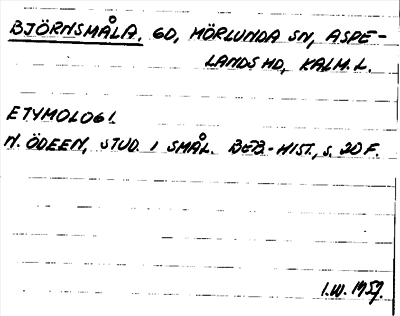 BJÖRNSMÅLA. GD, MÖRLUNDA SN, ASPE-
LANDS HD, KALM. L.
ETYMOLOGI.
N. ÖDEEN, STUD. I SMÅL. BEB-HIST., S. 20 F.
I.W. 1959.